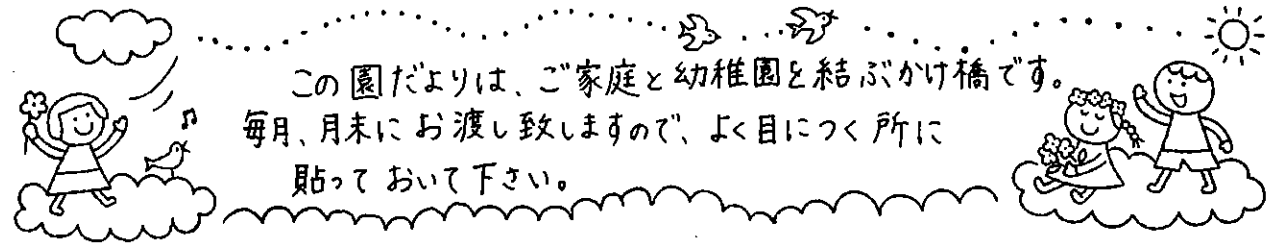 この園だよりは、ご家庭と幼稚園を結ぶかけ橋です。
毎月、月末にお渡し致しますので、よく目につく所に
貼っておいて下さい。